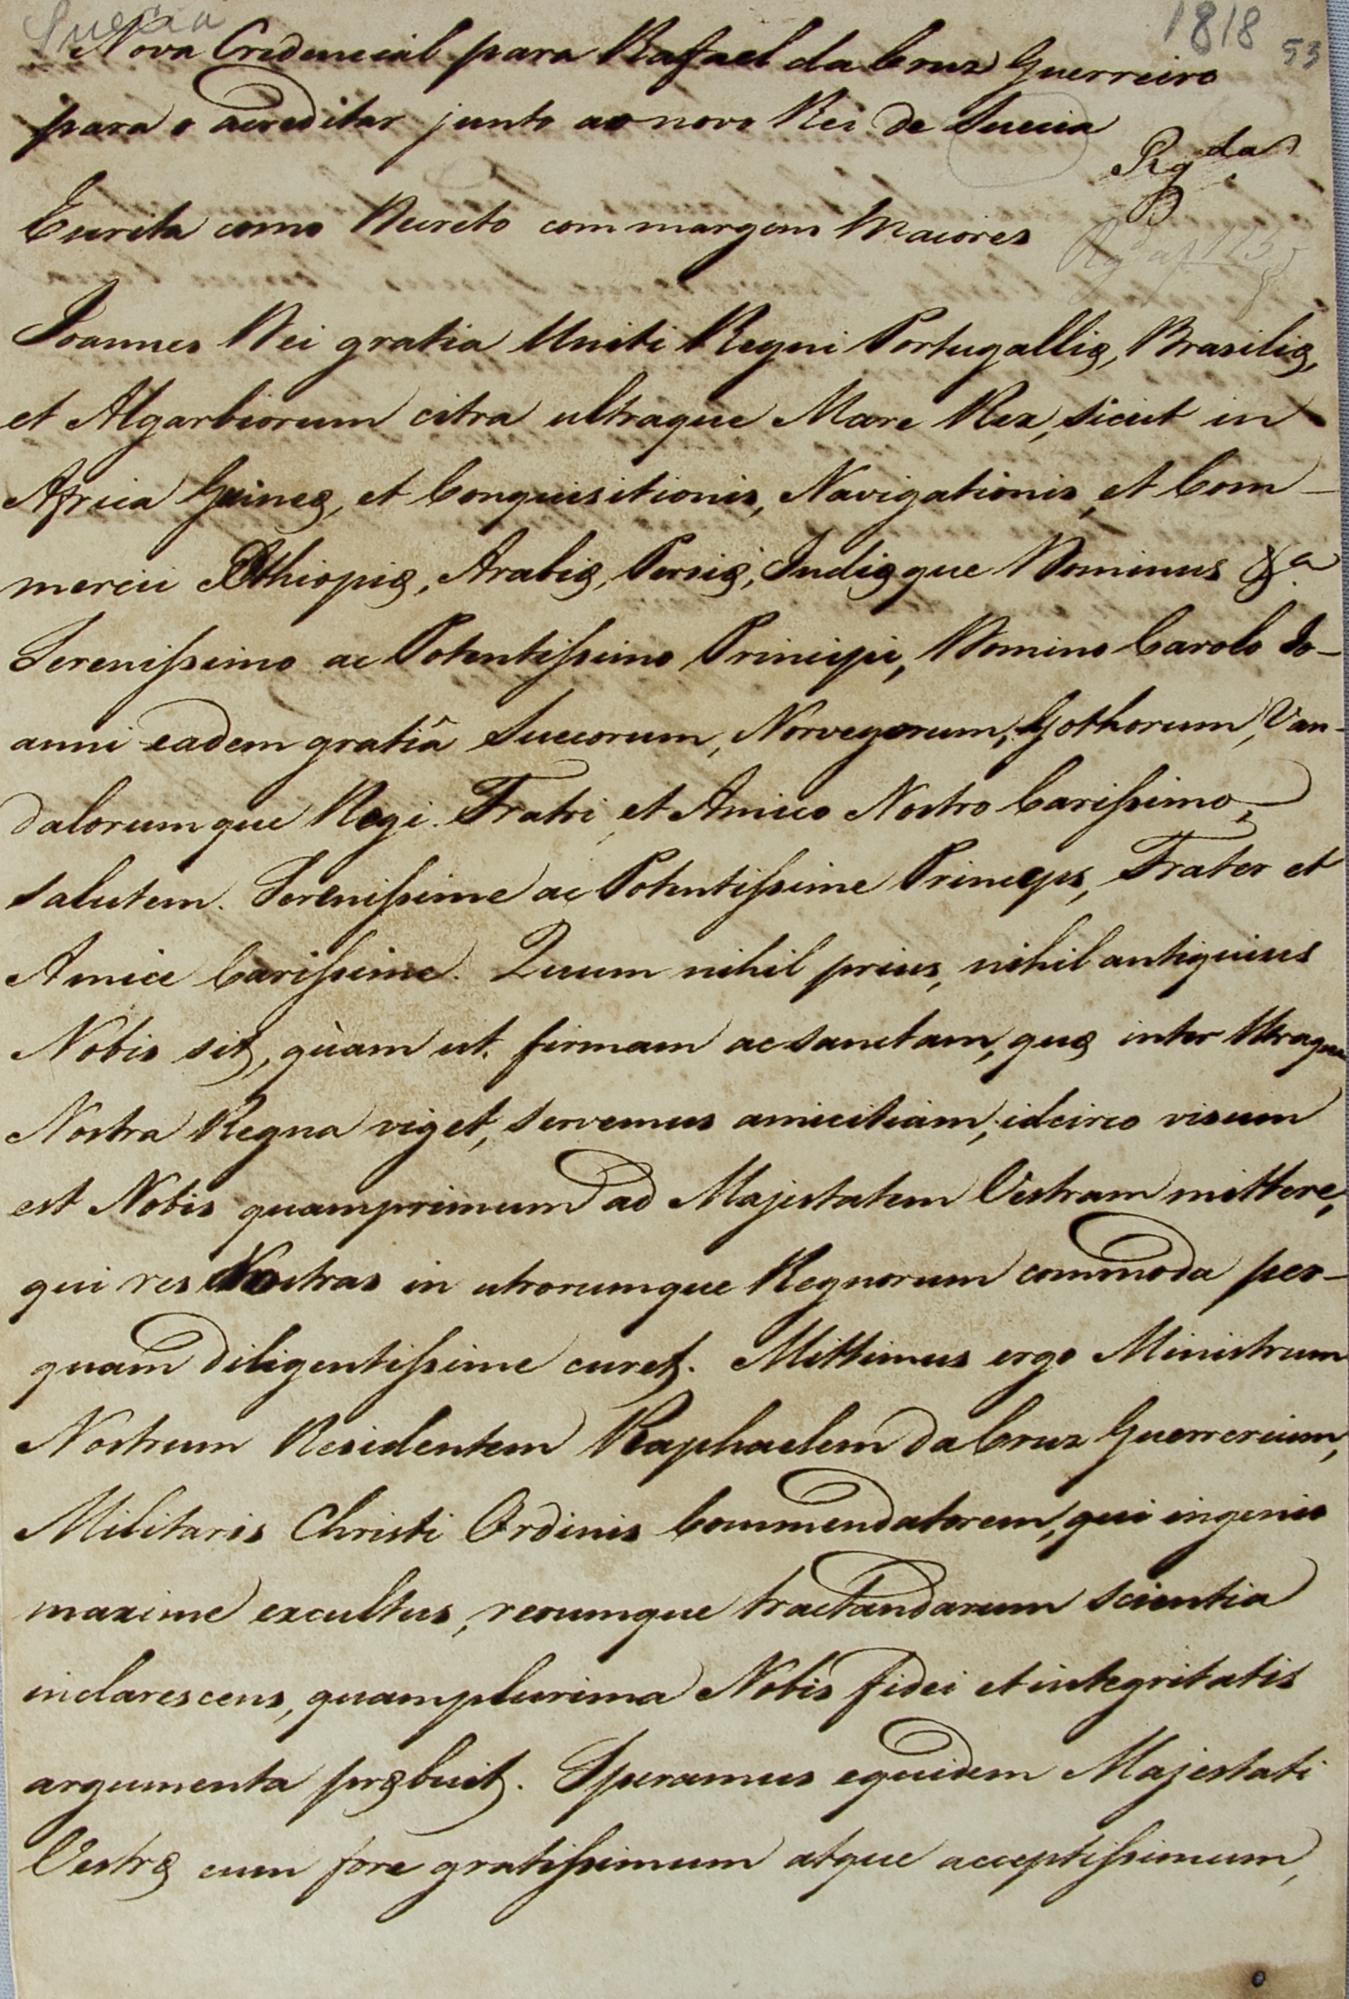 Suecia
1818
53
Nova Credencial para Rafael da Cruz Guerreiro
para o acreditar junto ao novo Rei de Suecia
Rgda
Escrita como Decreto com margens maiores
Joannes Dei gratia Uniti Regni Portugalliæ, Brasiliæ,
et Algarbiorum citra ultraque Mare Rex, sicut in
Africa Guineæ, et Conquisitionis, Navigationis, et Com-
mercii Æthiopiæ, Arabiæ, Persiæ, Indiæque Dominus &a
Serenissimo ac Potentissimo Principi, Domino Carolo Jo-
anni eadem gratiâ Suecorum, Norvegorum, Gothorum, Van-
dalorumque Regi. Fratri et Amico Nostro Carissimo,
salutem. Serenissime ac Potentissime Princeps, Frater et
Amice Carissime. Quum nihil prius, nihil antiquius
Nobis sit, quàm ut firmam ac sanctam, quæ inter Utraque
Nostra Regna viget, servemus amicitiam, idcirco visum
est Nobis quamprimum ad Majestatem Vestram mittere,
qui res Nostras in utrorumque Regnorum commoda per-
quam diligentissime curet. Mittimus ergo Ministrum
Nostrum Residentem Raphaelem da Cruz Guerrerium,
Militaris Christi Ordinis Commendatorem, qui ingenio
maxime excultus, rerumque tractandarum scientia
inclarescens, quamplurima Nobis fidei et integritatis
argumenta præbuit. Speramus equidem Majestati
Vestræ eum fore gratissimum atque acceptissimum,